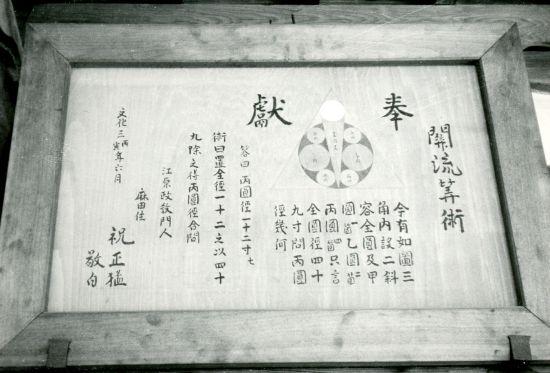 奉
獻
關流筭術
今有如圖三
角内設二斜
容全圓及甲
圓一乙圓二
丙圓四只言
全圓徑四十
九寸問丙圓
徑幾何
答曰丙圓徑一十二寸七
術曰置全徑一十二之以四十
九除之得丙圓徑合問
江原政敎門人
麻田住
祝正猛
敬白
文化三丙寅年六月